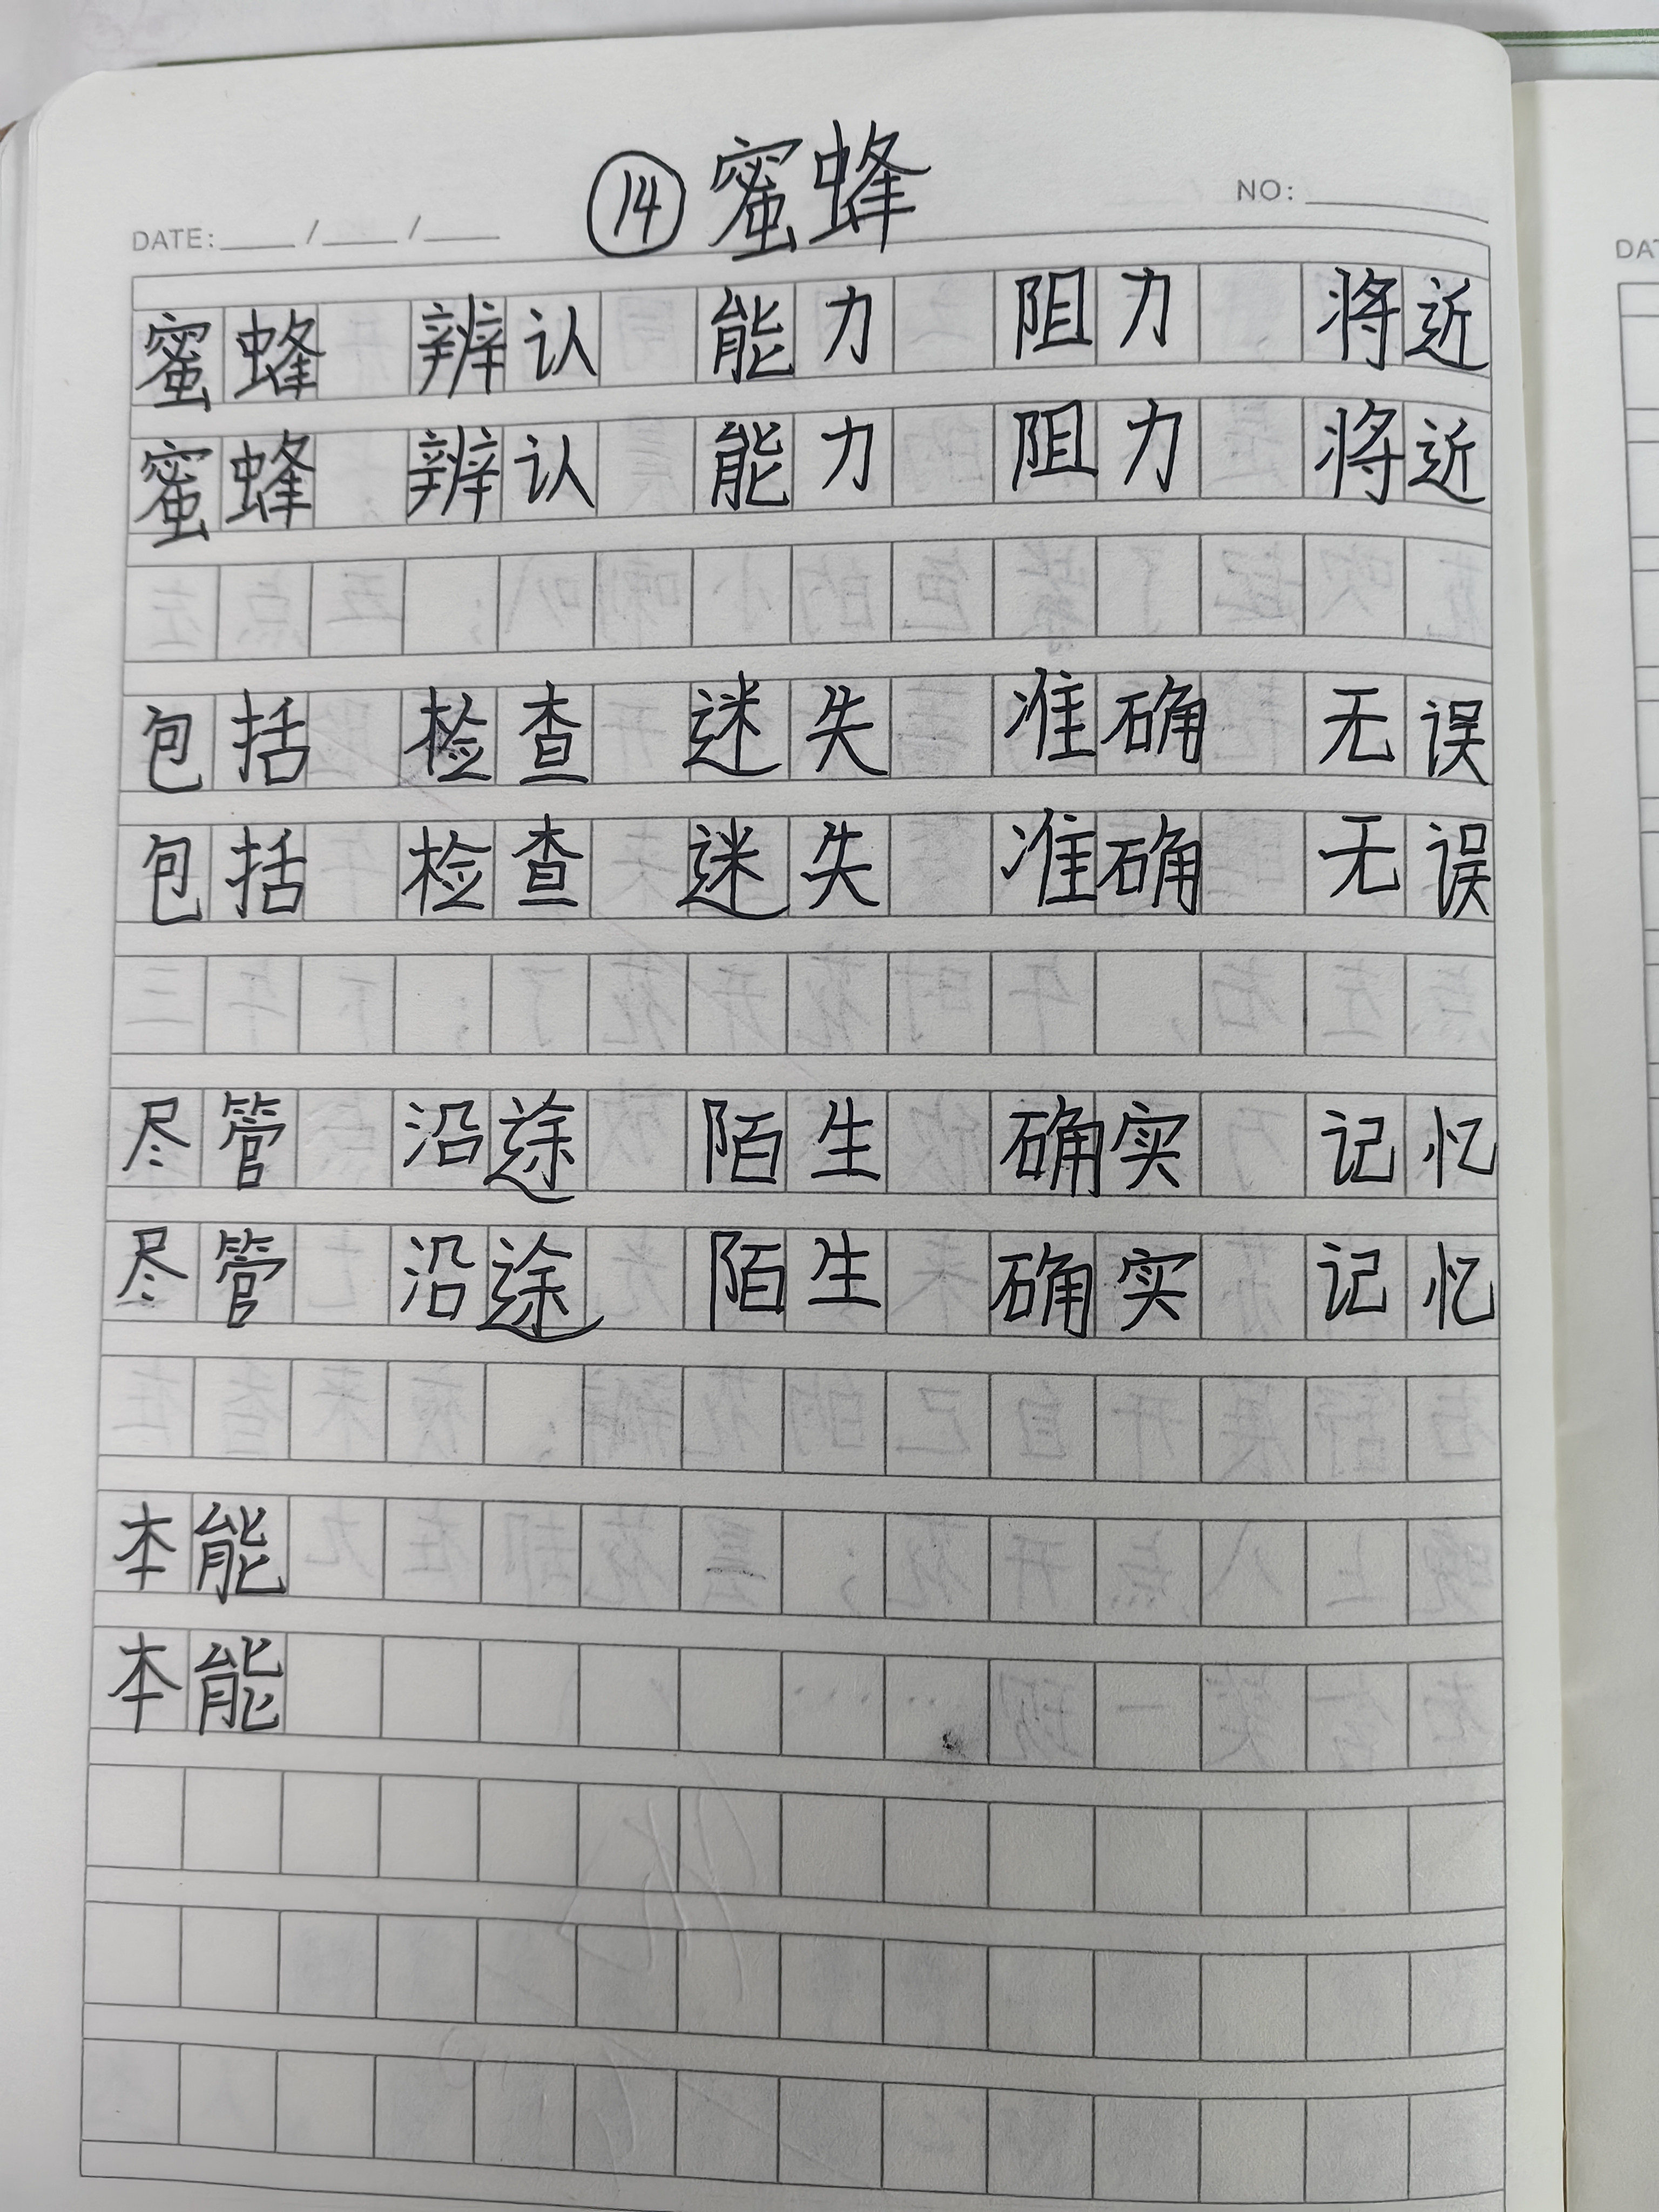 ⑭蜜蜂
DATE: / / NO:
蜜蜂 辨认 能力 阻力 将近
蜜蜂 辨认 能力 阻力 将近
包括 检查 迷失 准确 无误
包括 检查 迷失 准确 无误
尽管 沿途 陌生 确实 记忆
尽管 沿途 陌生 确实 记忆
本能
本能
DAT